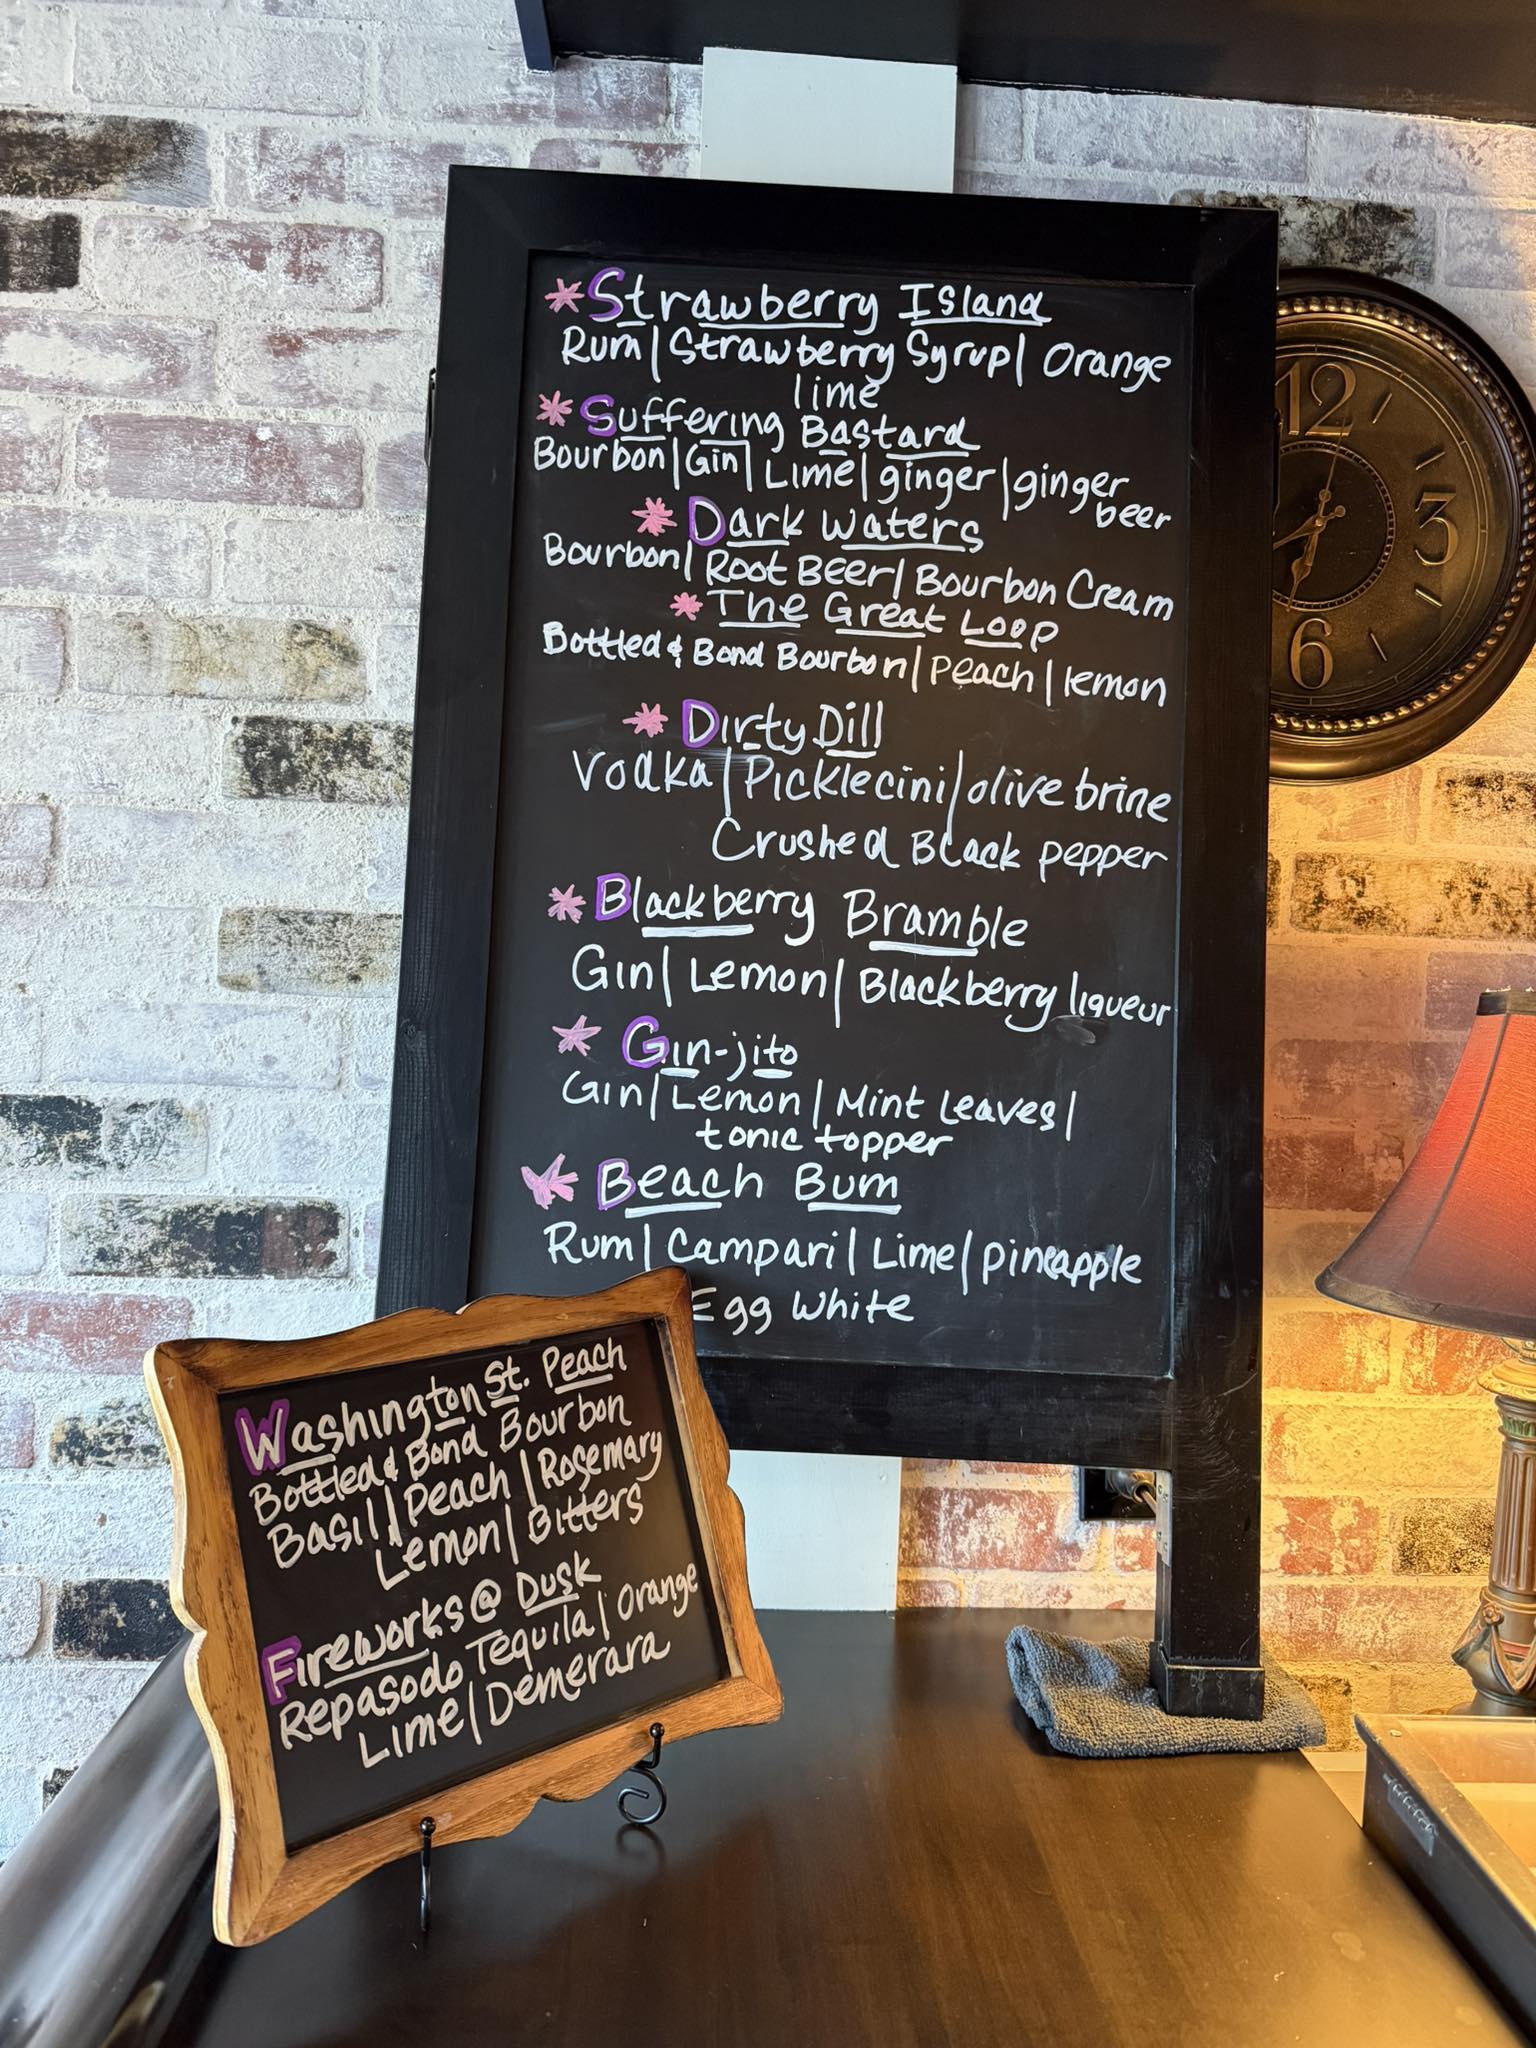 Strawberry Island
Rum | Strawberry Syrup | Orange
lime
Suffering Bastard
Bourbon | Gin | Lime | ginger | ginger
beer
Dark Waters
Bourbon | Root Beer | Bourbon Cream
The Great Loop
Bottled & Bond Bourbon | Peach | lemon
Dirty Dill
Vodka | Picklecini | olive brine
Crushed Black pepper
Blackberry Bramble
Gin | Lemon | Blackberry liqueur
Gin-jito
Gin | Lemon | Mint Leaves |
tonic topper
Beach Bum
Rum | Campari | Lime | pineapple
Egg White
Washington St. Peach
Bottled & Bond Bourbon
Basil | Peach | Rosemary
Lemon | Bitters
Fireworks @ Dusk
Repasodo Tequila | Orange
Lime | Demerara
12
3
6